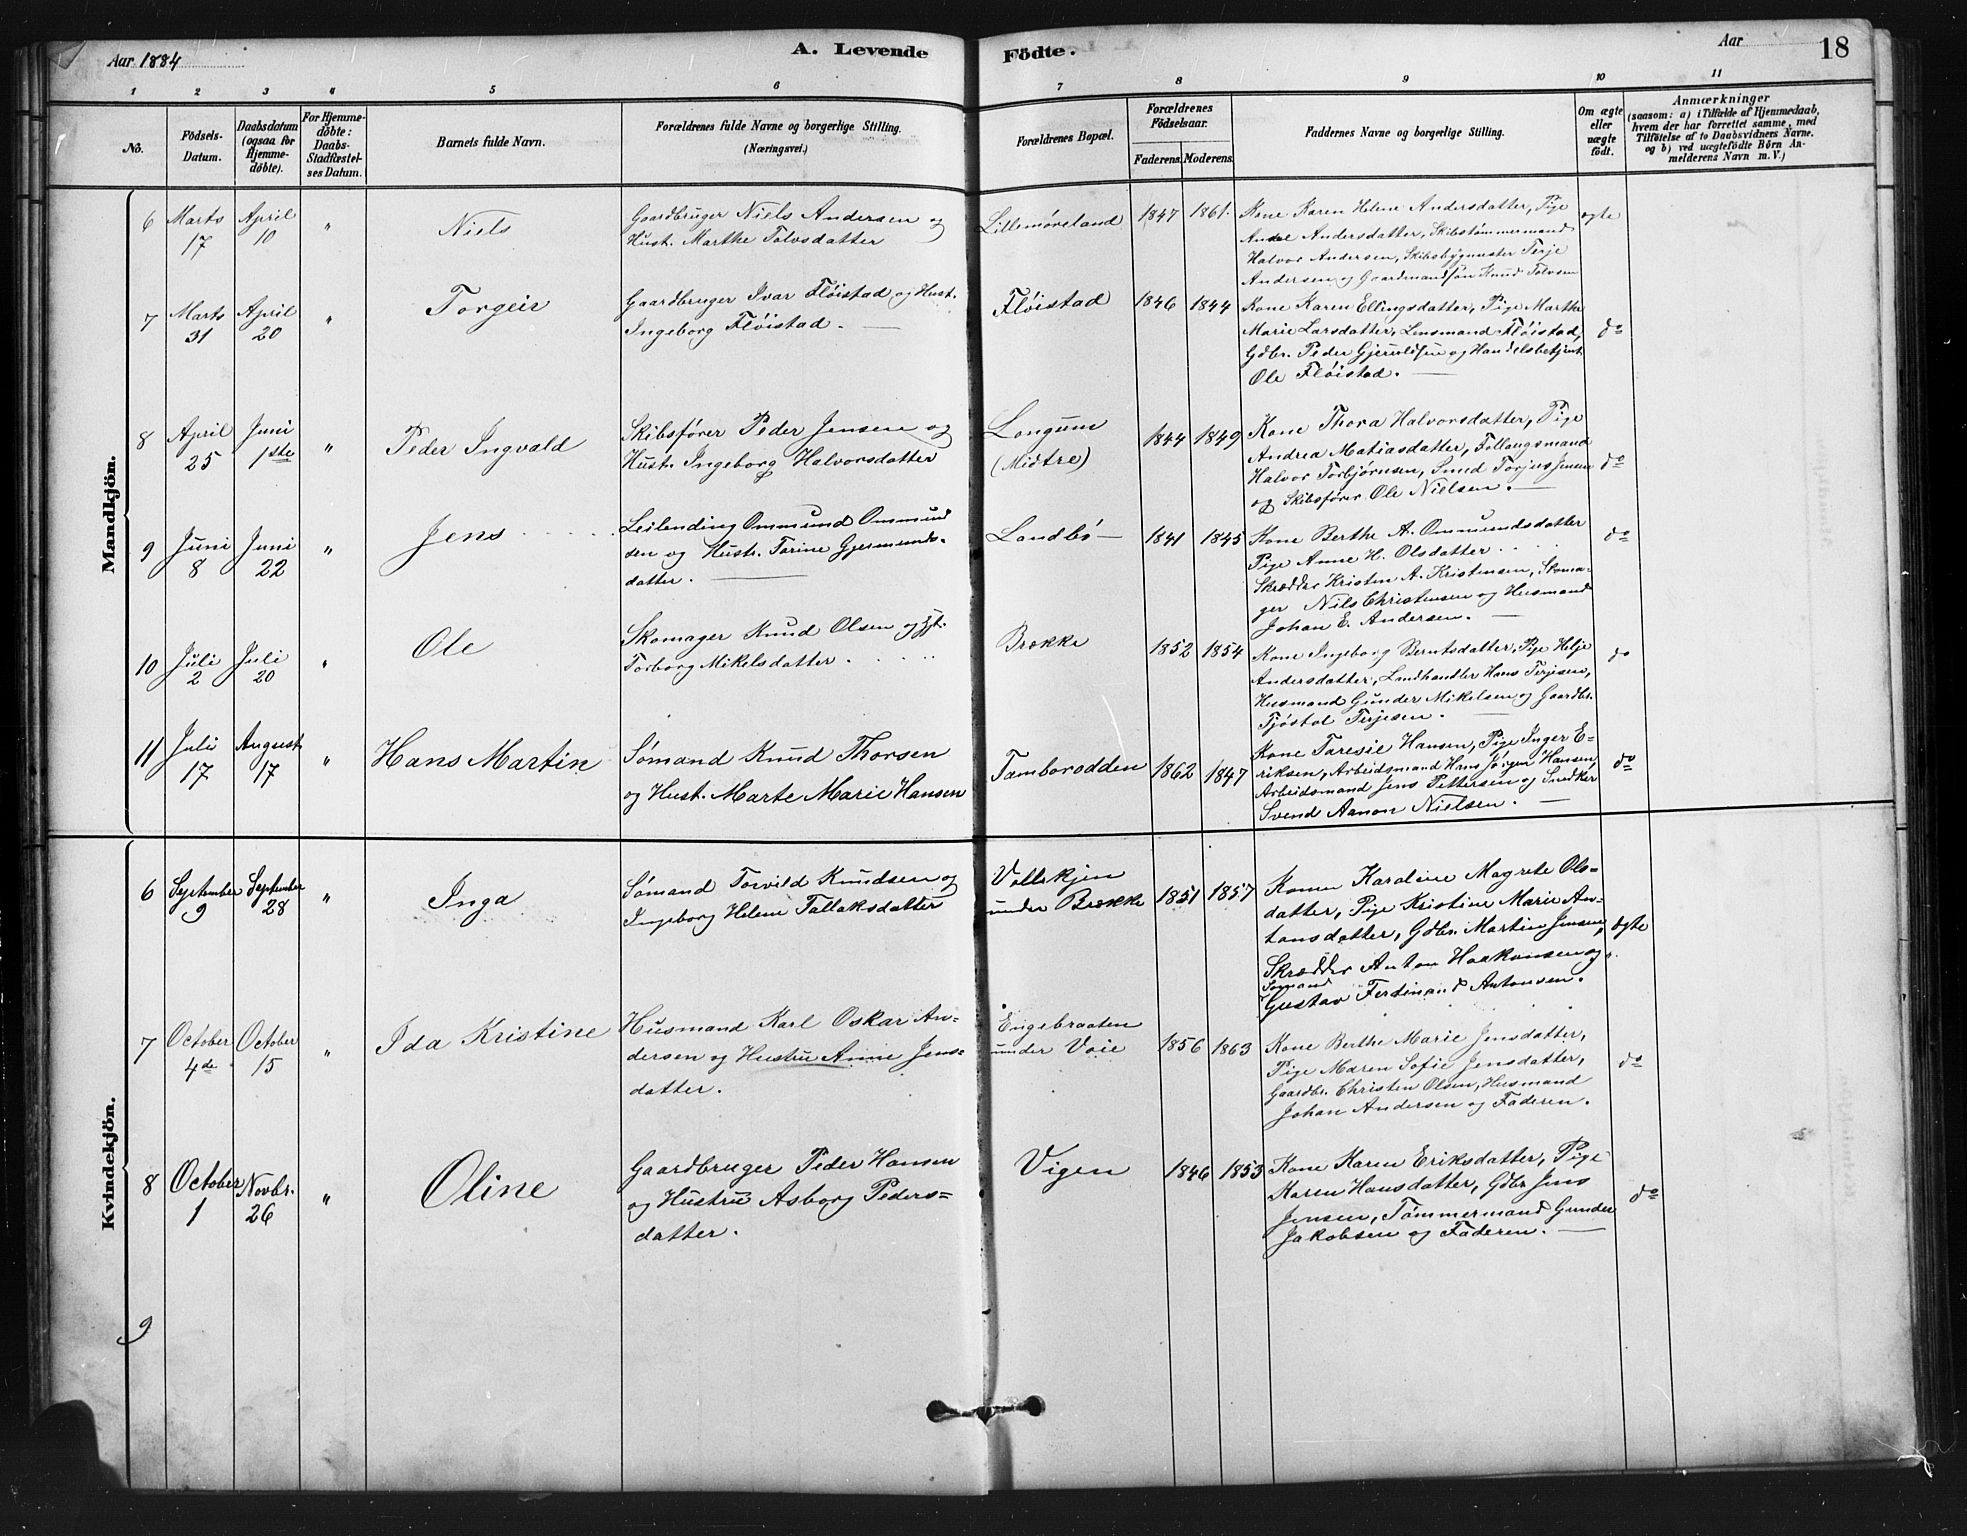 Aar 1884
A. Levende
Födte.
Aar
18
1 2 3 4 5 6 7 8 9 10 11
No.
Födsels-
Datum.
Daabsdatum
(ogsaa for
Hjemme-
döbte).
For Hjemme-
döbte:
Daabs-
Stadfæstel-
ses Datum.
Barnets fulde Navn.
Forældrenes fulde Navne og borgerlige Stilling.
(Næringsvei.)
Forældrenes Bopæl.
Forældrenes
Födselsaar.
Faderens. Moderens.
Faddernes Navne og borgerlige Stilling.
Om ægte
eller
uægte
födt.
Anmærkninger
(saasom: a) i Tilfælde af Hjemmedaab,
hvem der har forrettet samme, med
Tilföielse af to Daabsvidners Navne.
og b) ved uægtefödte Börn An-
melderens Navn m. V.)
Mandkjön.
6 Marts 17 April 10 " Niels
Gaardbruger Niels Andersen og
Hust. Marthe Tolvsdatter
Lillemøresland 1847 1861.
Kone Karen Helene Andersdatter, Pige
Andersdatter, Skibstømmermand
Halvor Andersen, Skibsbygmester Terje
Andersen og Gaardmandsøn Knud Tolvsen
ægte
7 Marts 31 April 20 " Torgeir
Gaardbruger Ivar Fløistad og Hust.
Ingeborg Fløistad.
Fløistad 1846 1844
Kone Karen Ellingsdatter, Pige Marthe
Marie Larsdatter, Lensmand Fløistad,
Gdbr. Peder Gjeruldsen og Handelsbetjent
Ole Fløistad.
do
8 April 25 Juni 1ste " Peder Ingvald
Skibsfører Peder Jensen og
Hust. Ingeborg Halvorsdatter
Longum
(Midtre)
1844 1849
Kone Thora Halvorsdatter, Pige
Andrea Matiasdatter, Follaugsmand
Halvor Torbjørnsen, Smed Torjus Jensen
og Skibsfører Ole Nielsen.
do
9 Juni 8 Juni 22 " Jens
Leilending Ommund Ommund
sen og Hustr. Tarine Gjermunds-
datter.
Landbø 1841 1845
Kone Berthe A. Ommundsdatter
Pige Anne H. Olsdatter
Skrædder Kristen A. Kristensen, Skoma-
ger Nils Christensen og Husmand
Johan E. Andersen.
do
10 Juli 2 Juli 20 " Ole
Skomager Knud Olsen og
Torborg Mikelsdatter.
Brække 1852 1854
Kone Ingeborg Berntsdatter, Pige Helje
Andersdatter, Landhandler Hans Terjesen,
Husmand Gunder Mikelsen og Gaardbr.
Tjøstol Terjesen.
do
11 Juli 17 August 17 " Hans Martin
Sømand Knud Thorsen
og Hust. Marte Marie Hansen
Tamborodden 1862 1847
Kone Taresie Hansen, Pige Inger E-
riksen, Arbeidsmand Hans Jørgen Hansen,
Arbeidsmand Jens Pettersen og Snedker
Svend Aanon Nielsen.
do
Kvindekjön.
6 September 9 September 28 " Inga
Sømand Torvild Knudsen og
Ingeborg Helene Tallaksdatter
Vollekjen
under Brække
1851 1857
Konen Karoline Magrete Ols-
datter, Pige Kristine Marie An-
tonsdatter, Gdbr. Martin Jensen,
Skrædder Anton Haakonsen og
Sømand
Gustav Ferdinand Antonsen.
ægte
7 October 4de October 15 " Ida Kristine
Husmand Karl Oskar An-
dersen og Hustru Anne Jens-
datter.
Engebraaten
under Voie
1856 1863
Kone Berthe Marie Jensdatter,
Pige Maren Sofie Jensdatter,
Gaardbr. Christen Olsen, Husmand
Johan Andersen og Faderen.
do
8 October 1 Novbr. 26 " Oline
Gaardbruger Peder Hansen
og Hustru Asborg Peders-
datter.
Vigen 1846 1853
Kone Karen Eriksdatter, Pige
Karen Hansdatter, Gdbr Jens
Jensen, Tømmermand Gunder
Jakobsen og Faderen.
do
9